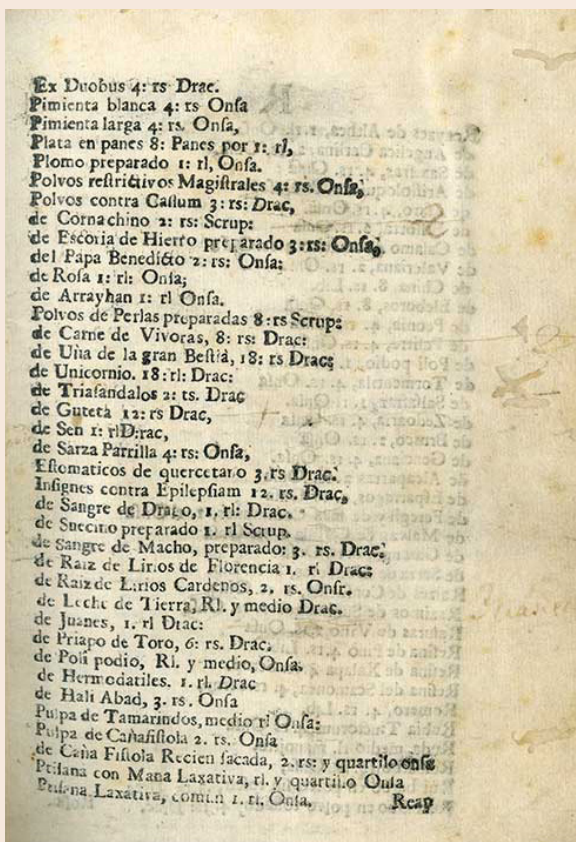 Ex Duobus 4: rs Drac.
Pimienta blanca 4: rs Onſa
Pimienta larga 4: rs. Onſa,
Plata en panes 8: Panes por 1: rl,
Plomo preparado 1: rl, Onſa.
Polvos reſtrictivos Magiſtrales 4: rs. Onſa,
Polvos contra Caſum 3: rs: Drac,
de Cornachino 2: rs: Scrup:
de Eſcoria de Hierro preparado 3: rs: Onſa,
del Papa Benedicto 2: rs: Onſa:
de Roſa 1: rl: Onſa;
de Arrayhan 1: rl Onſa.
Polvos de Perlas preparadas 8: rs Scrup:
de Carne de Vivoras, 8: rs: Drac:
de Uña de la gran Beſtia, 18: rs Drac:
de Unicornio. 18: rl: Drac:
de Triaſandalos 2: rs. Drac
de Guteta 12: rs Drac,
de Sen 1: rlD:rac,
de Sarza Parrilla 4: rs: Onſa,
Eſtomaticos de quercetano 3. rs Drac.
Inſignes contra Epilepſiam 12. rs. Drac,
de Sangre de Drago, 1. rl: Drac.
de Succino preparado 1. rl Scrup.
de Sangre de Macho, preparado: 3. rs. Drac.
de Raiz de Lirios de Florencia 1. rl Drac:
de Raiz de Lirios Cardenos, 2. rs. Onſr.
de Leche de Tierra, Rl. y medio Drac.
de Juanes, 1. rl Drac:
de Priapo de Toro, 6: rs. Drac.
de Poli podio, Rl. y medio, Onſa.
de Hermodatiles. 1. rl. Drac
de Hali Abad, 3. rs. Onſa
Pulpa de Tamarindos, medio rl Onſa:
Pulpa de Cañafiſtola 2. rs. Onſa
de Caña Fiſtola Recien ſacada, 2. rs: y quartilo onſa
Ptiſana con Mana Laxativa, rl. y quartilio Onſa
Ptiſana Laxativa, comun 1. rl. Onſa.
Reap